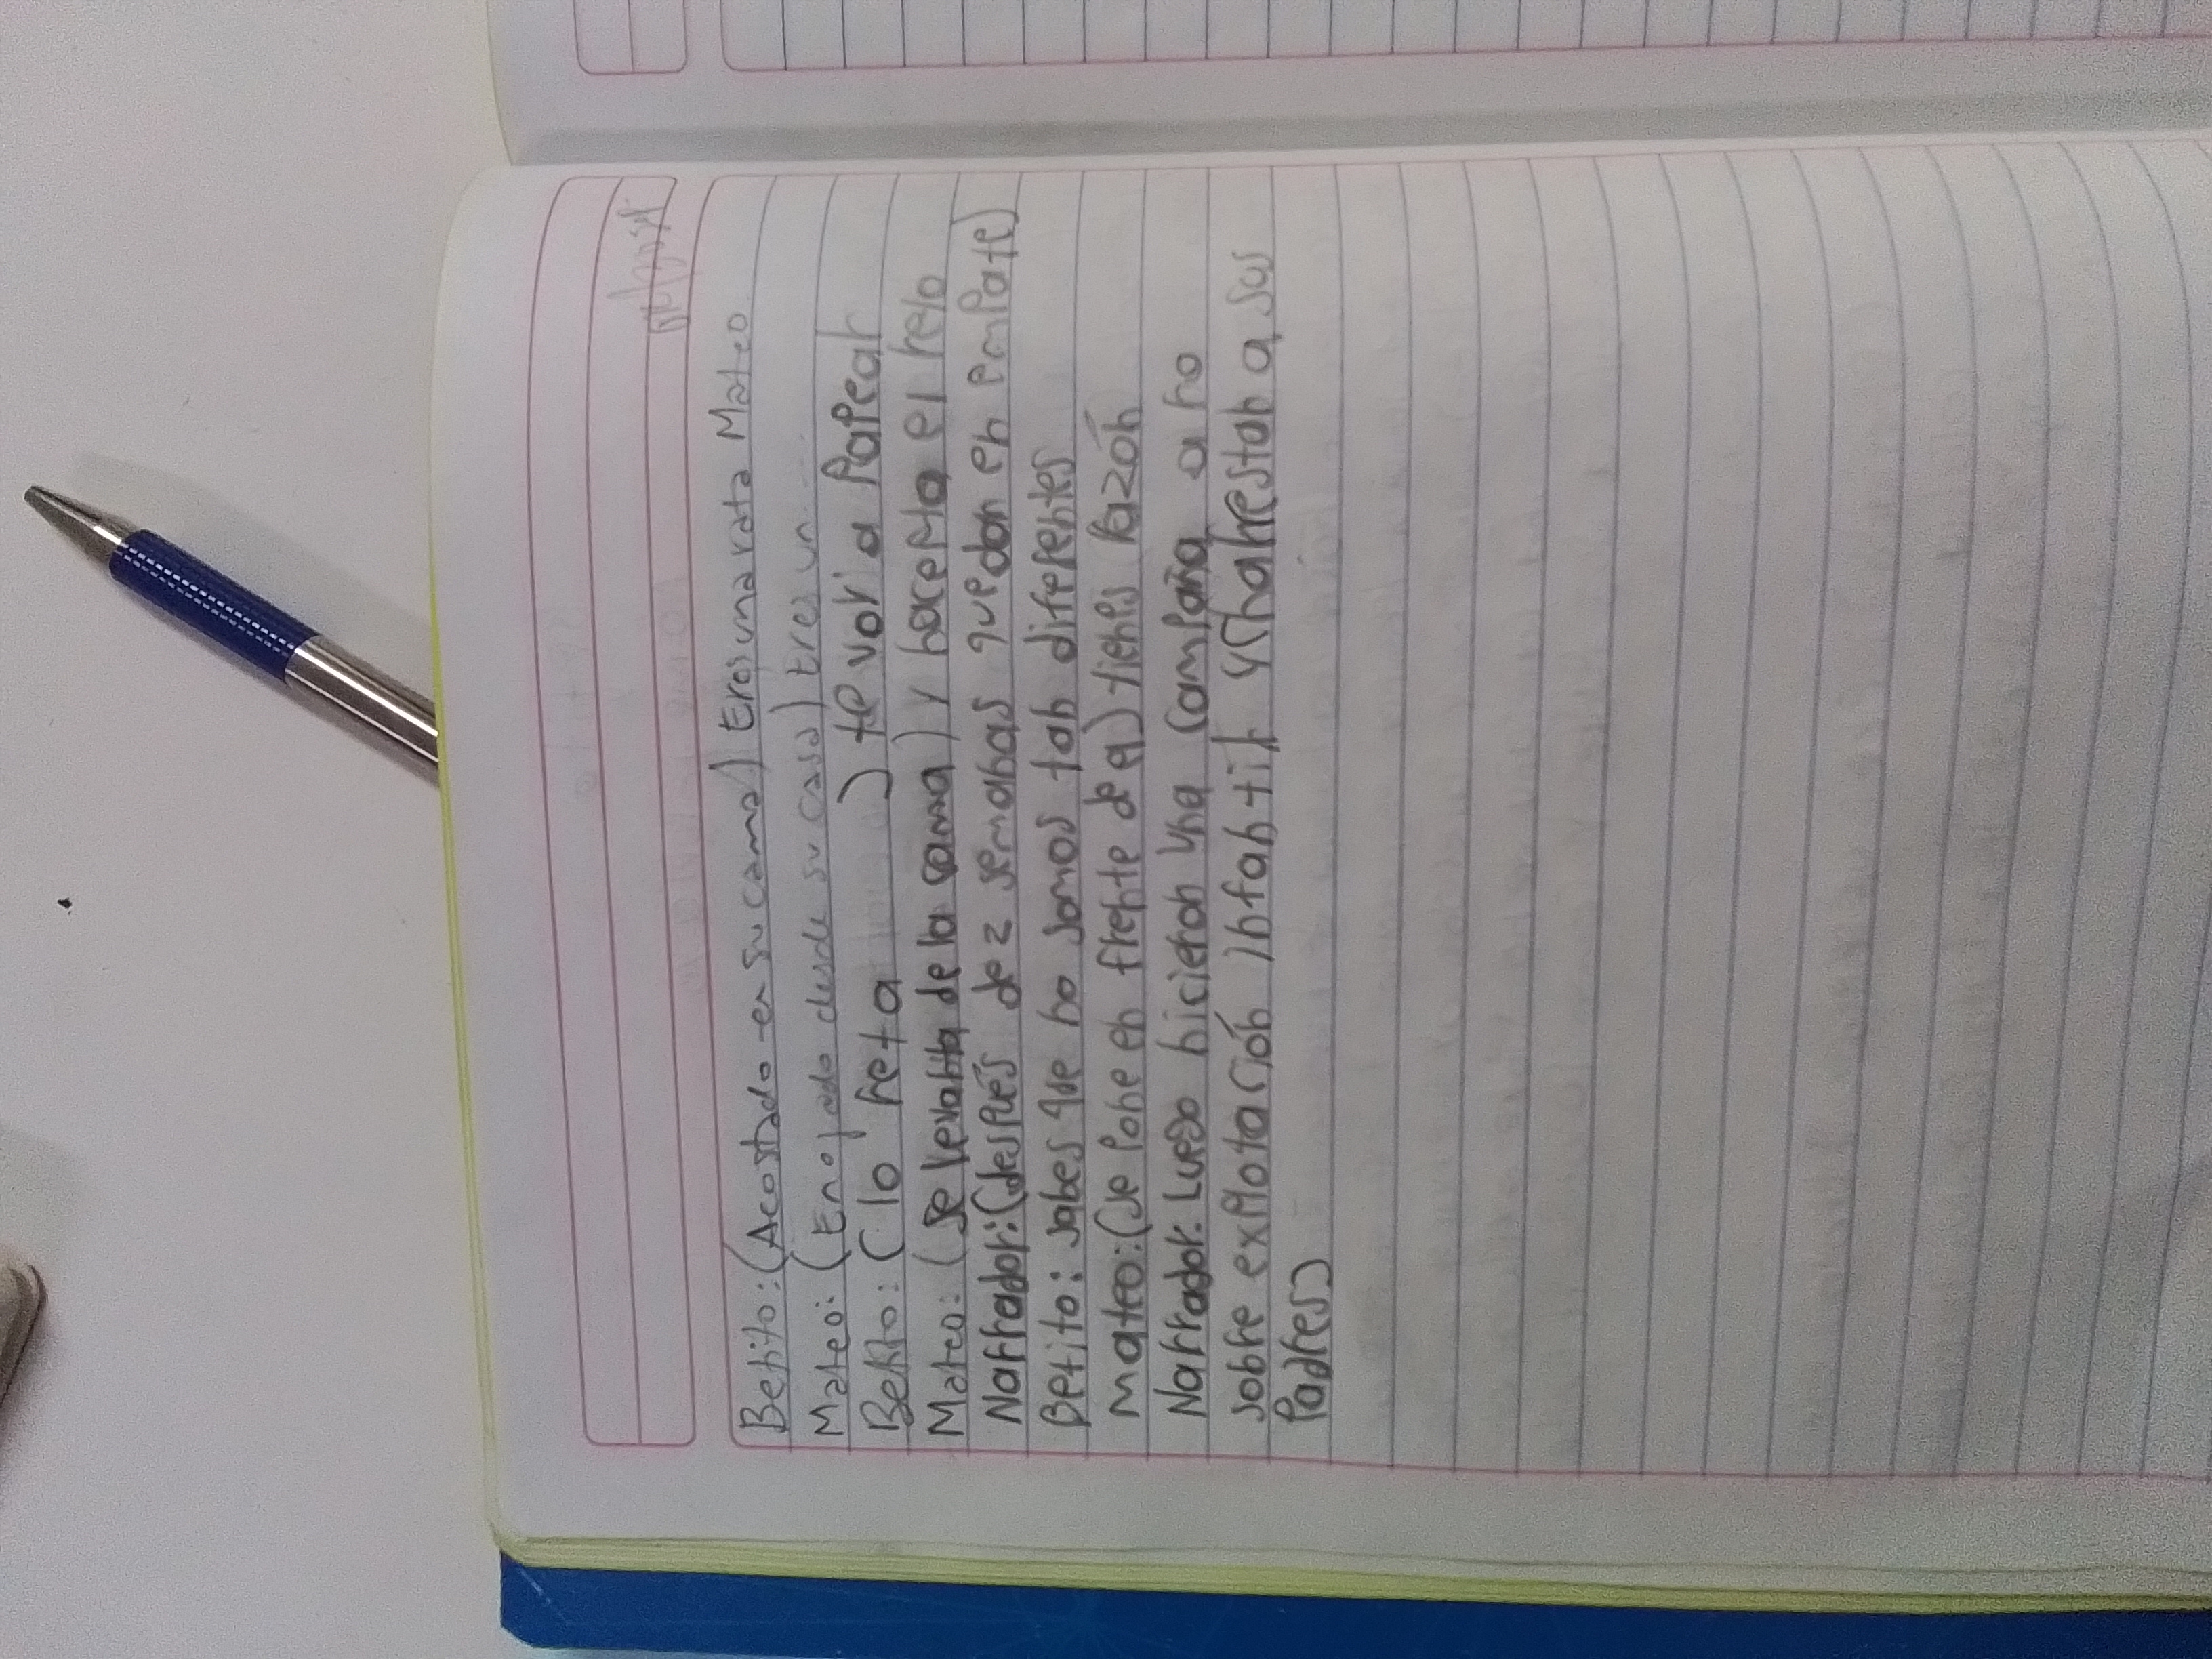 Betito: (Acostado en su cama) Eres una rata Mateo
Mateo: (Enojado desde su casa) Eres un...
Betito: (lo reta ) te voi a Papear
Mateo: (se levanta de la cama) y hacepta el reto
Narrador: (después de 2 semanas quedan en empate)
Betito: sabes que no somos tan diferentes
Mateo: (se pone en frente de el) tienes razón
Narrador: Luego hicieron una campaña a no
sobre explotación infantil y
Padres)